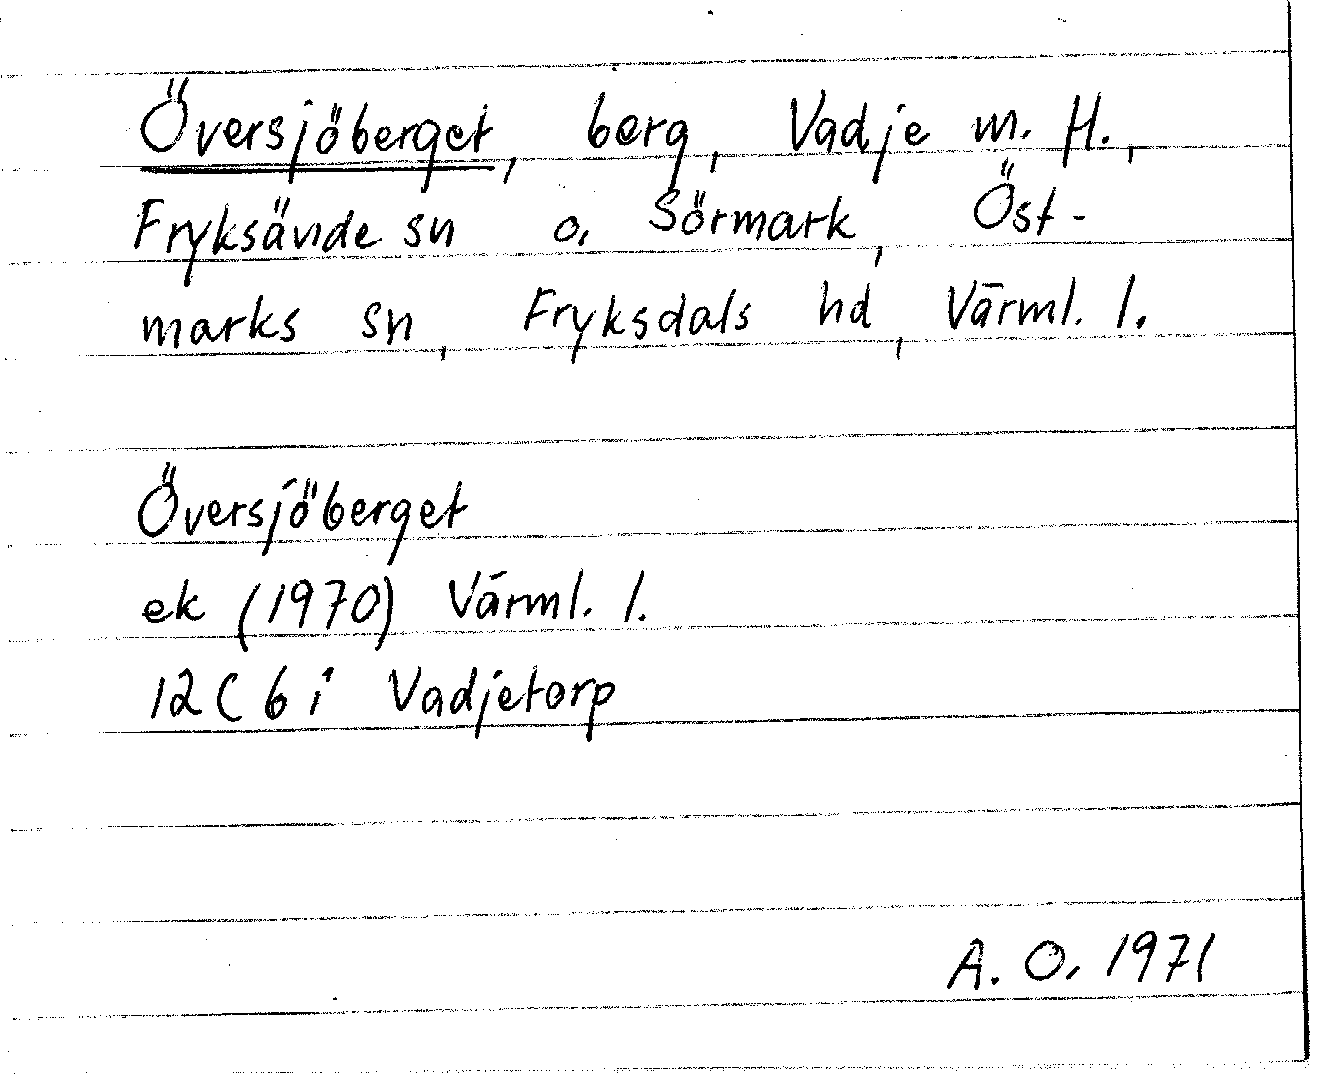 Översjöberget, berg, Vadje m. H.,
Fryksände sn o. Sörmark, Öst-
marks sn, Fryksdals hd, Värml. l.
Översjöberget
ek (1970) Värml. l.
12 C 6 i Vadjetorp
A. O. 1971